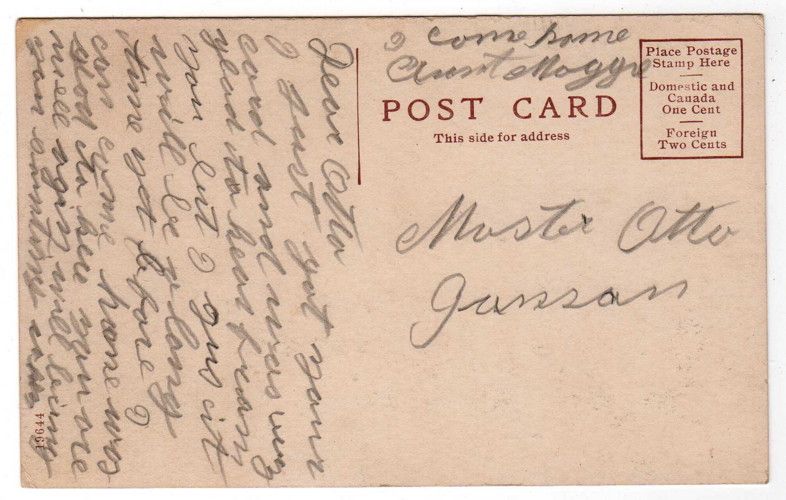 Dear Otto
I Just got your
card and was very
glad to hear from
you but I gus it
will be a long
time yet before I
can come home was
glad to hee
well
you
I come home
Aunt Maggie
POST CARD
This side for address
Place Postage
Stamp Here
Domestic and
Canada
One Cent
Foreign
Two Cents
Master Otto
Janssan
19644